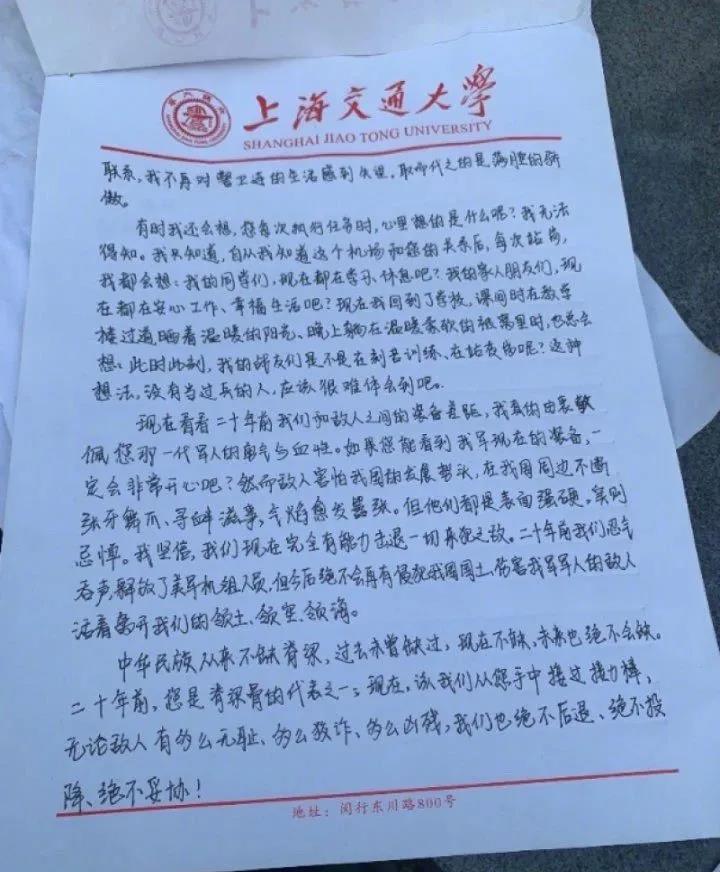 上海交通大学
SHANGHAI JIAO TONG UNIVERSITY
联系，我不再对警卫连的生活感到失望，取而代之的是满腔的骄
傲。
有时我还会想，您每次执行任务时，心里想的是什么呢？我无法
得知。我只知道，自从我知道这个机场和您的关系后，每次站岗，
我都会想：我的同学们，现在都在学习、休息吧？我的家人朋友们，现
在都在安心工作、幸福生活吧？现在我回到了学校，课间时在教学
楼过道晒着温暖的阳光、晚上躺在温暖柔软的被窝里时，也总会
想：此时此刻，我的战友们是不是在刻苦训练、在站夜岗呢？这种
想法，没有当过兵的人，应该很难体会到吧。
现在看看二十年前我们和敌人之间的装备差距，我真的由衷敬
佩您那一代军人的勇气与血性。如果您能看到我军现在的装备，一
定会非常开心吧？然而敌人害怕我国的发展势头，在我国周边不断
张牙舞爪、寻衅滋事，气焰愈发嚣张。但他们都是表面强硬，实则
忌惮。我坚信，我们现在完全有能力击退一切来犯之敌。二十年前我们忍气
吞声，释放了美军机组人员，但今后绝不会再有侵犯我国国土、伤害我军军人的敌人
活着离开我们的领土、领空、领海。
中华民族从来不缺脊梁，过去未曾缺过，现在不缺，未来也绝不会缺。
二十年前，您是脊梁骨的代表之一；现在，该我们从您手中接过接力棒，
无论敌人有多么无耻、多么狡诈、多么凶残，我们也绝不后退、绝不投
降、绝不妥协！
地址：闵行东川路800号